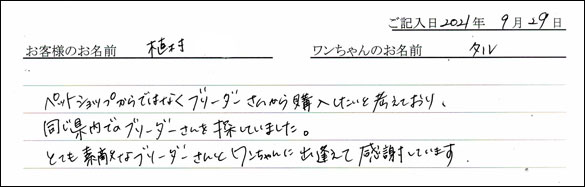 ご記入日 2021年 9月 29日
お客様のお名前 植村 ワンちゃんのお名前 タル
ペットショップからではなくブリーダーさんから購入したいと考えており、
同じ県内でのブリーダーさんを探していました。
とても素敵なブリーダーさんとワンちゃんに出逢えて感謝しています。